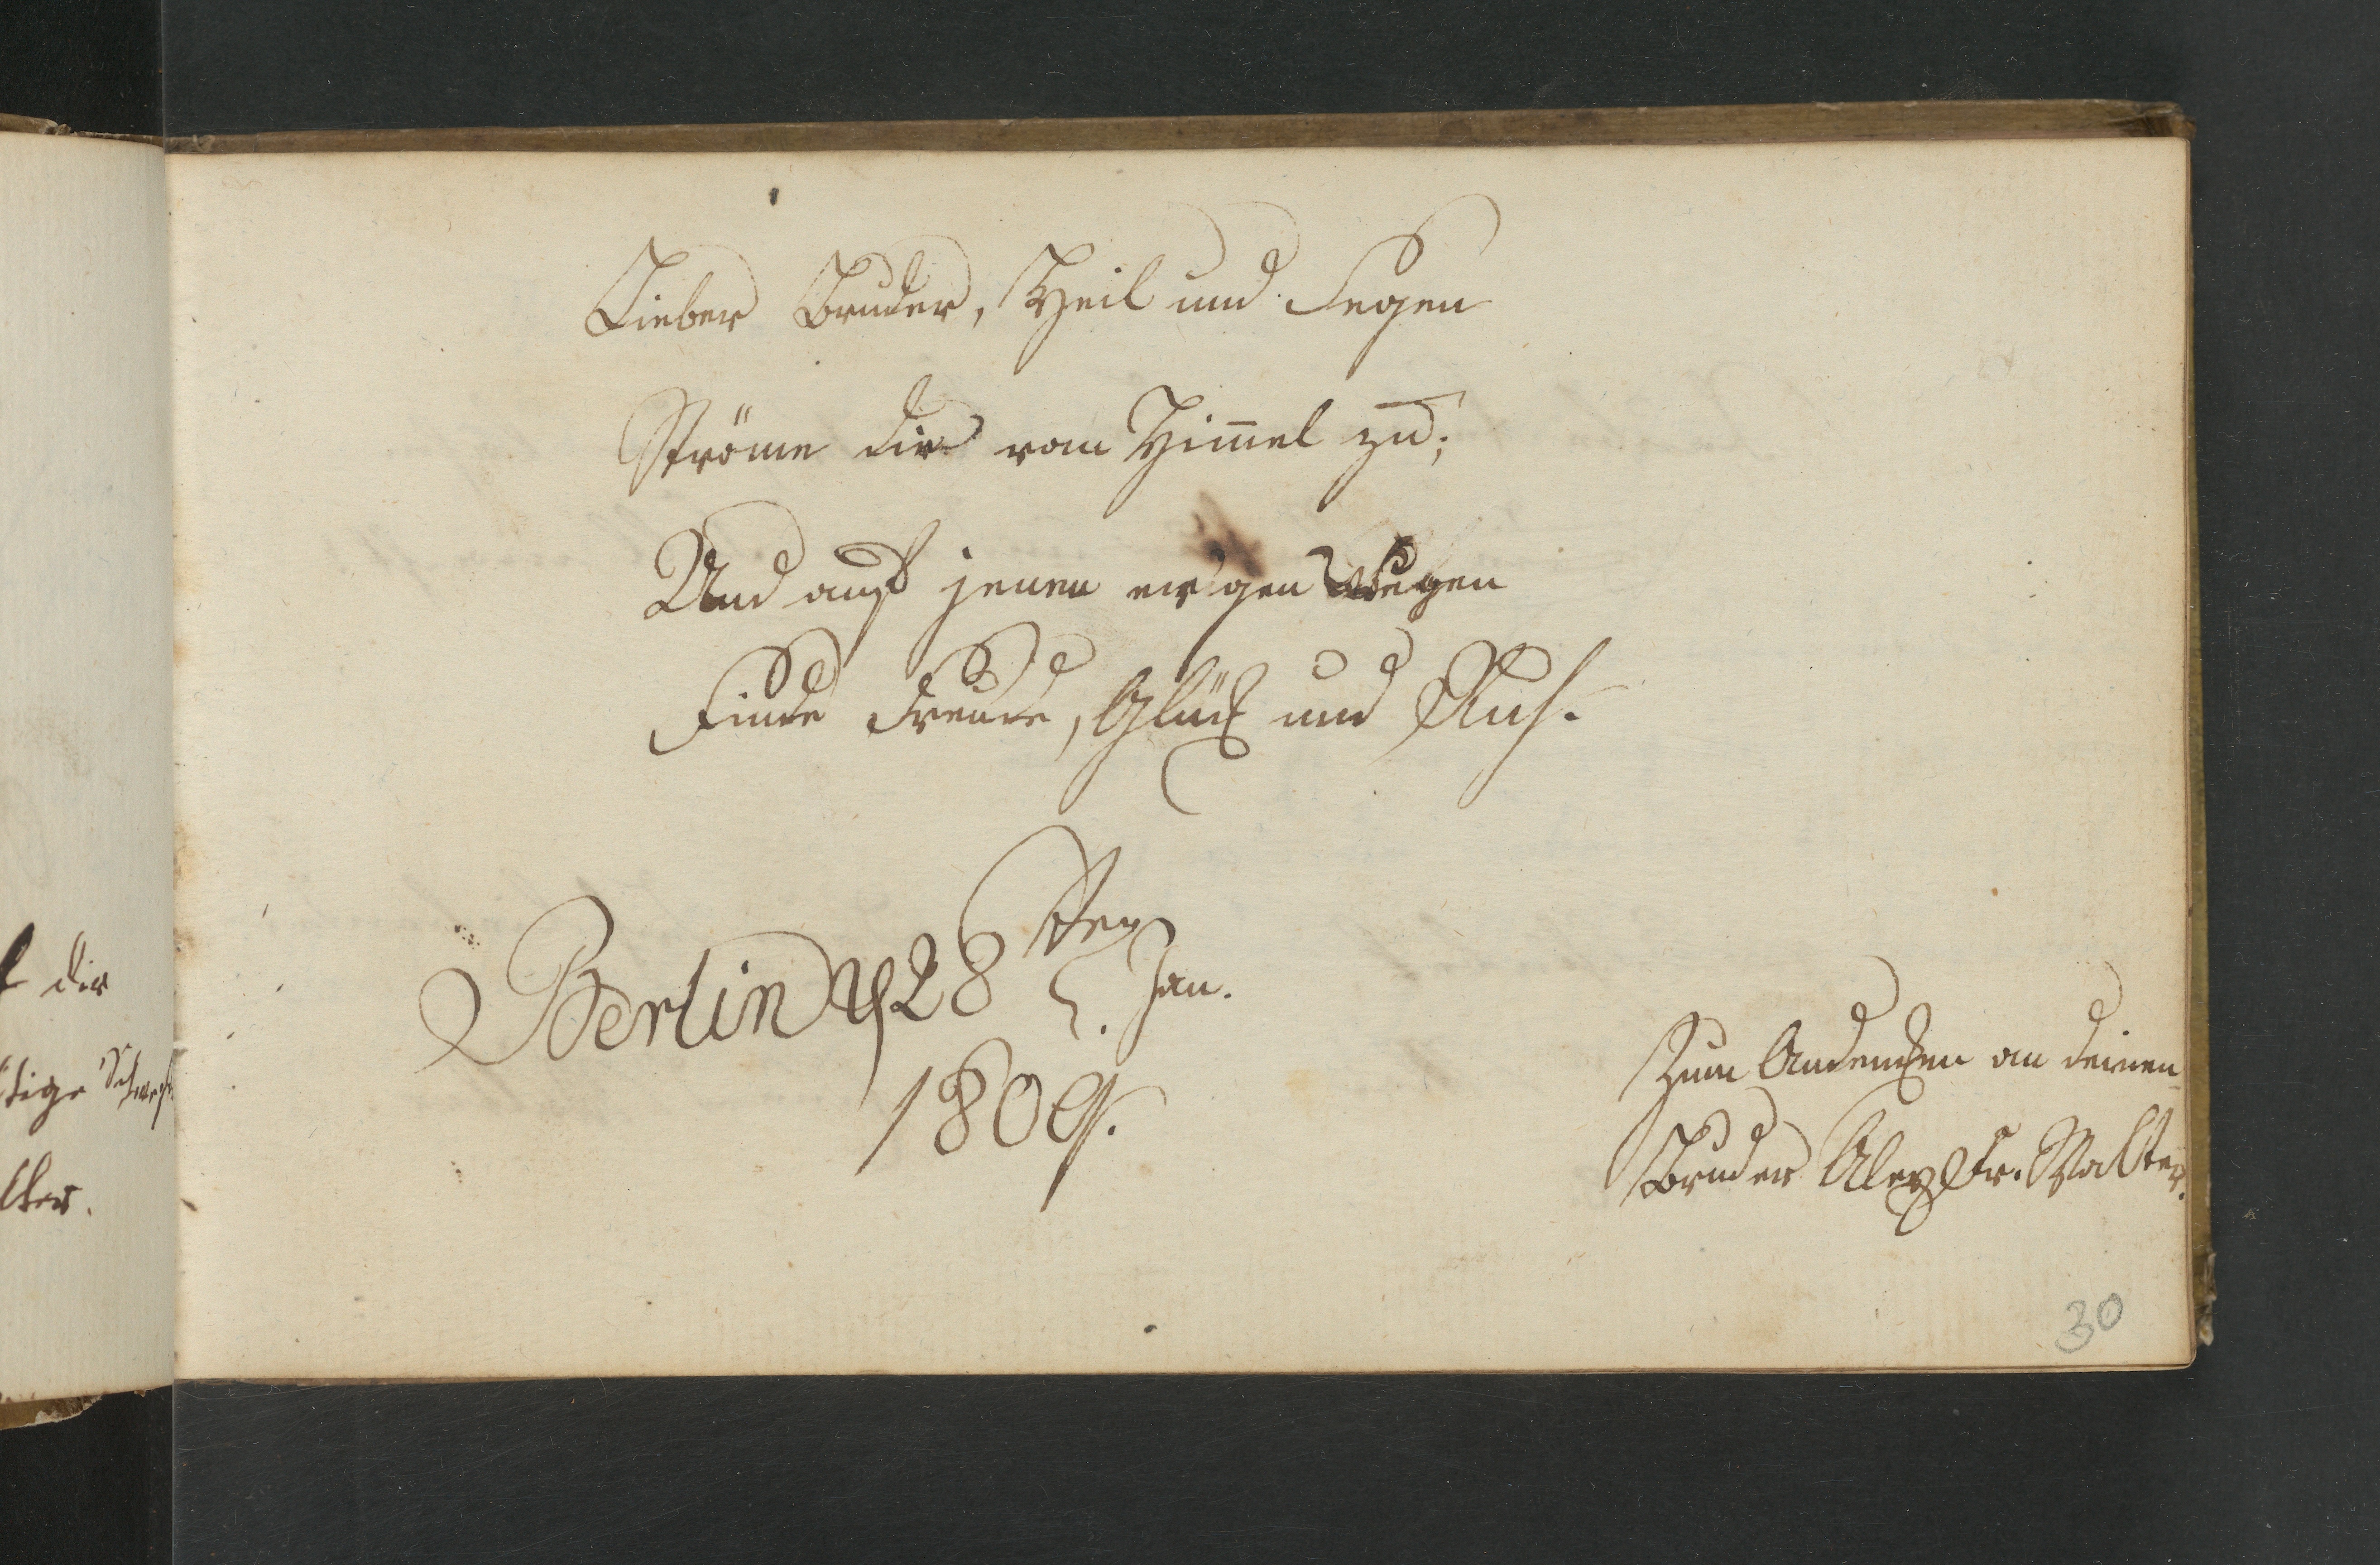 Lieber Bruder, Heil und Segen
Ströme dir vom Him̄el zu;
Und auf jenen ew'gen Wegen
Finde Freude, Glück und Ruh.
Berlin d 28 sten Jan.
1809.
Zum Andencken an deinen
Bruder Alex Fr. Walter.
30
dir
tige
lter.